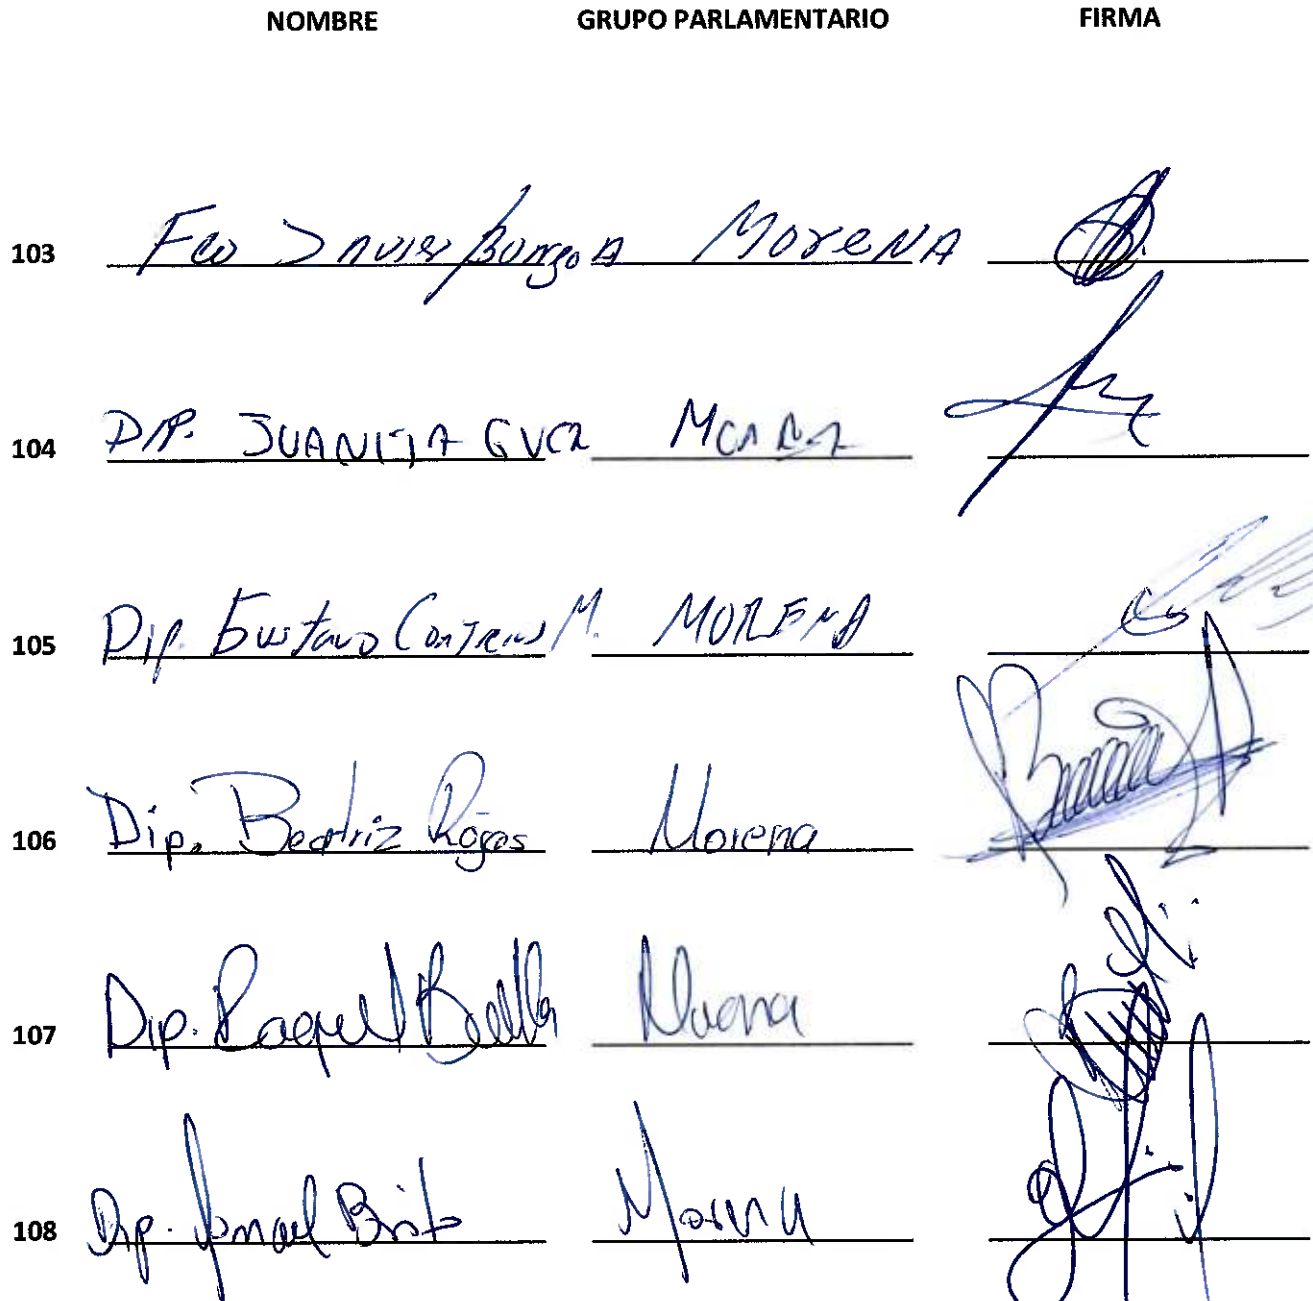 NOMBRE GRUPO PARLAMENTARIO FIRMA
103 Fco Javier Borrego A Morena
104 Dip. JUANITA GUERRA MORENA
105 Dip. Gustavo Contreras M. MORENA
106 Dip. Beatriz Rojas Morena
107 Dip. Raquel Bonilla Morena
108 Dip. Ismael Brito Morena